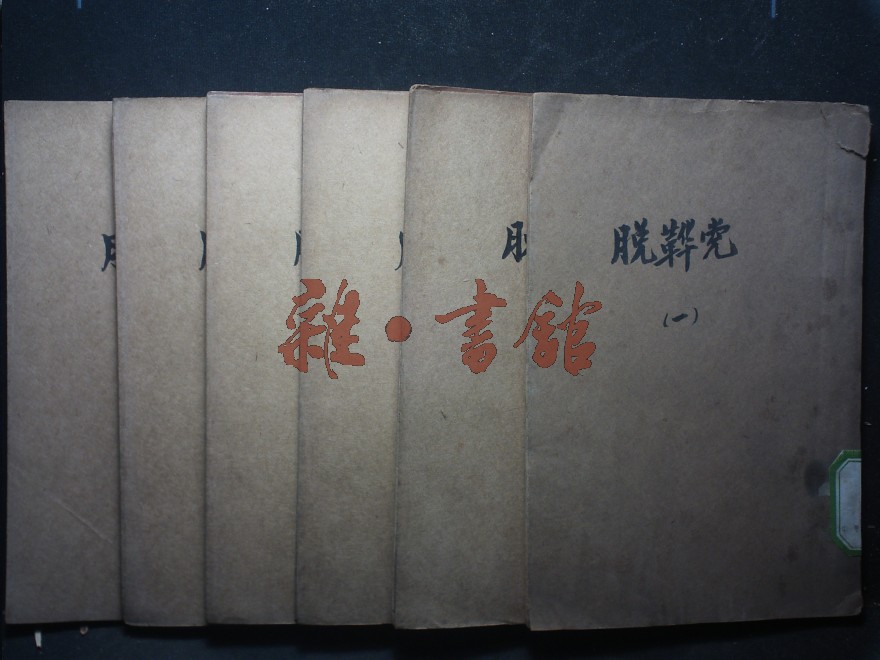 脱鞾党
(一)
雜·書館